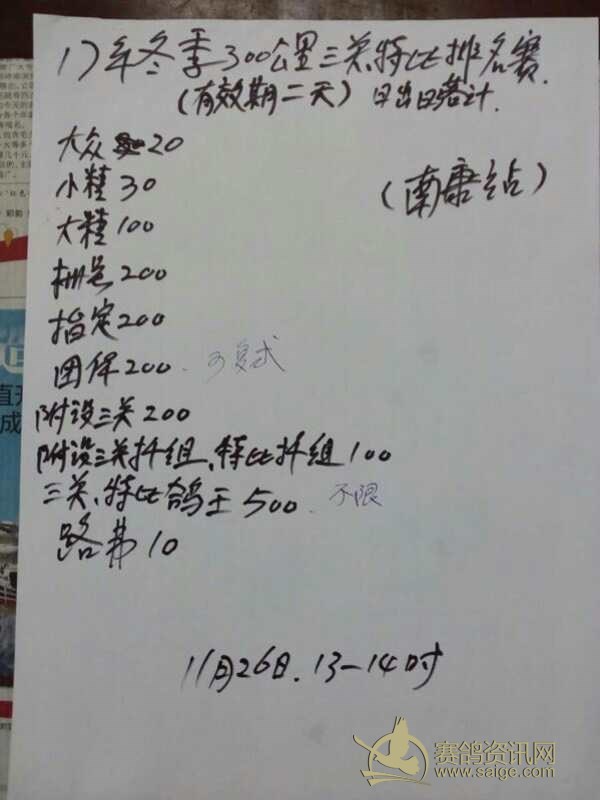 17年冬季300公里三关、特比排名赛.
(有效期二天) 日出日落计.
大众 20
(南康站)
小精 30
大精 100
栅号 200
指定 200
团体 200. 可复式
附设三关 200
附设三关抔组、特比抔组 100
三关、特比鸽王 500. 不限
路弗 10
11月26日. 13-14时
赛鸽资讯网
www.saige.com
直升
成